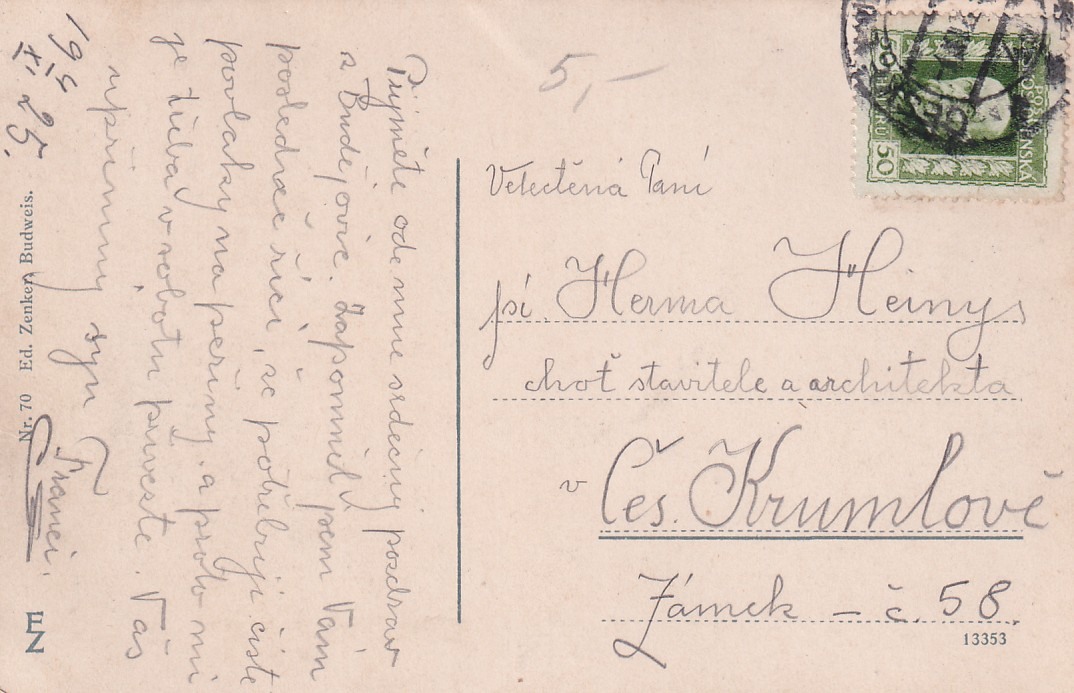 5,–
50 50
ČESKOSLOVENSKÁ
Velectěná Paní
pí. Herma Heinys
choť stavitele a architekta
v Čes. Krumlově
Zámek – č. 58.
13353
Přijměte ode mne srdečný pozdrav
z Budějovic. Zapomněl jsem Vám
posledně říci, že potřebuji čisté
povlaky na peřiny, a proto mi
je třeba v sobotu přivezte. Váš
upřímný syn Franci.
19 25.
XI.
Nr. 70 Ed. Zenker, Budweis.
EZ